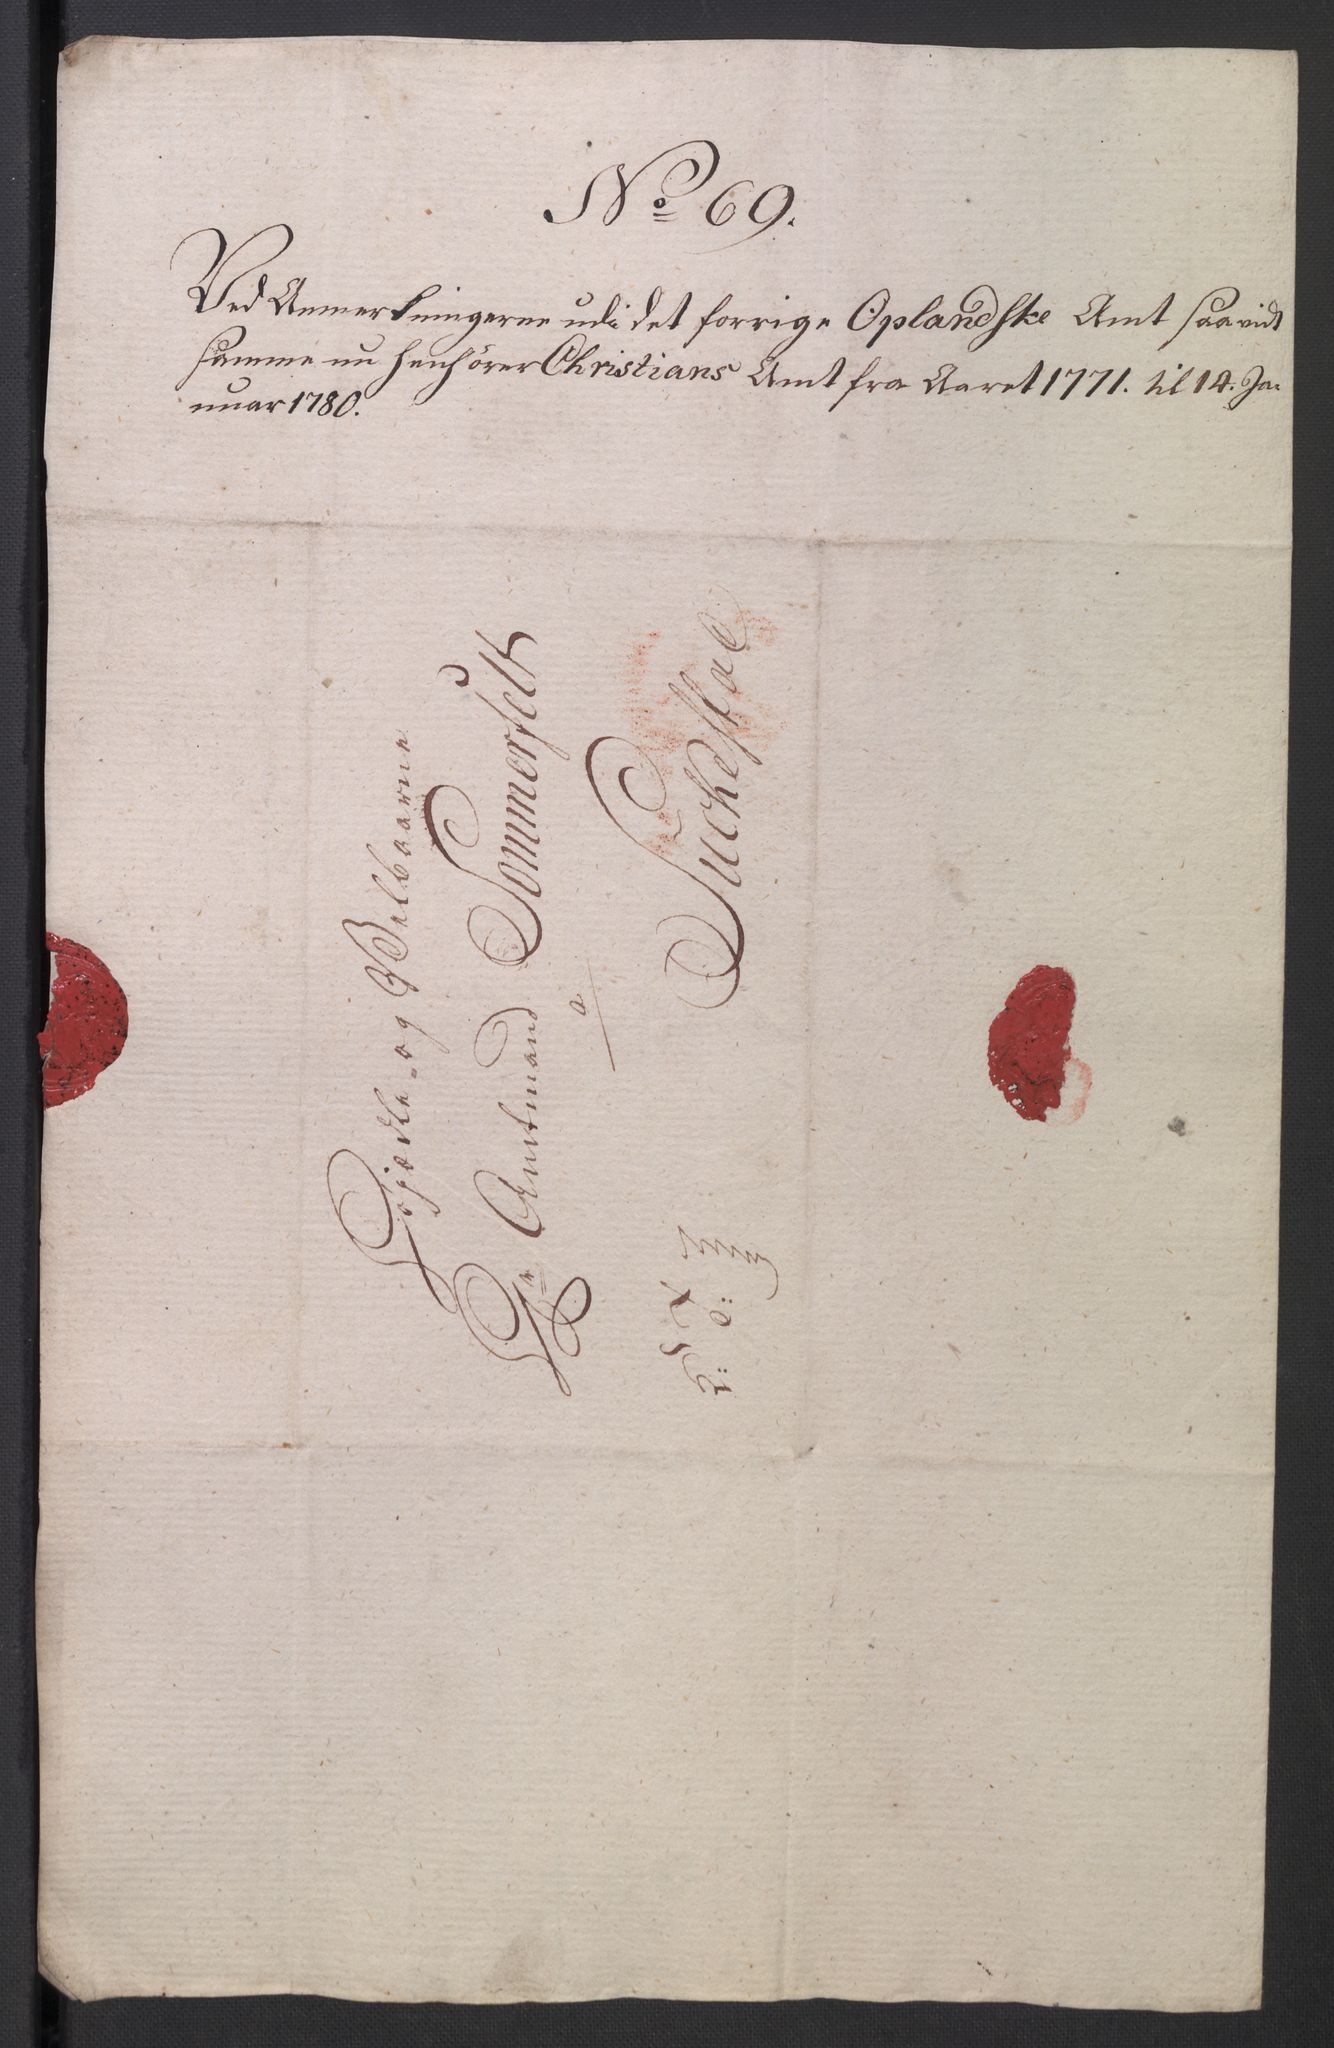 No 69.
Ved Anmerkningerne udi det forrige Oplandske Amt saavidt
samme nu henhörer Christians Amt fra Aaret 1771. til 14. Ja=
nuar 1780.
Höjædle- og Velbaarne
Hr Amtmand Sommerfelt
a
Sukkestad